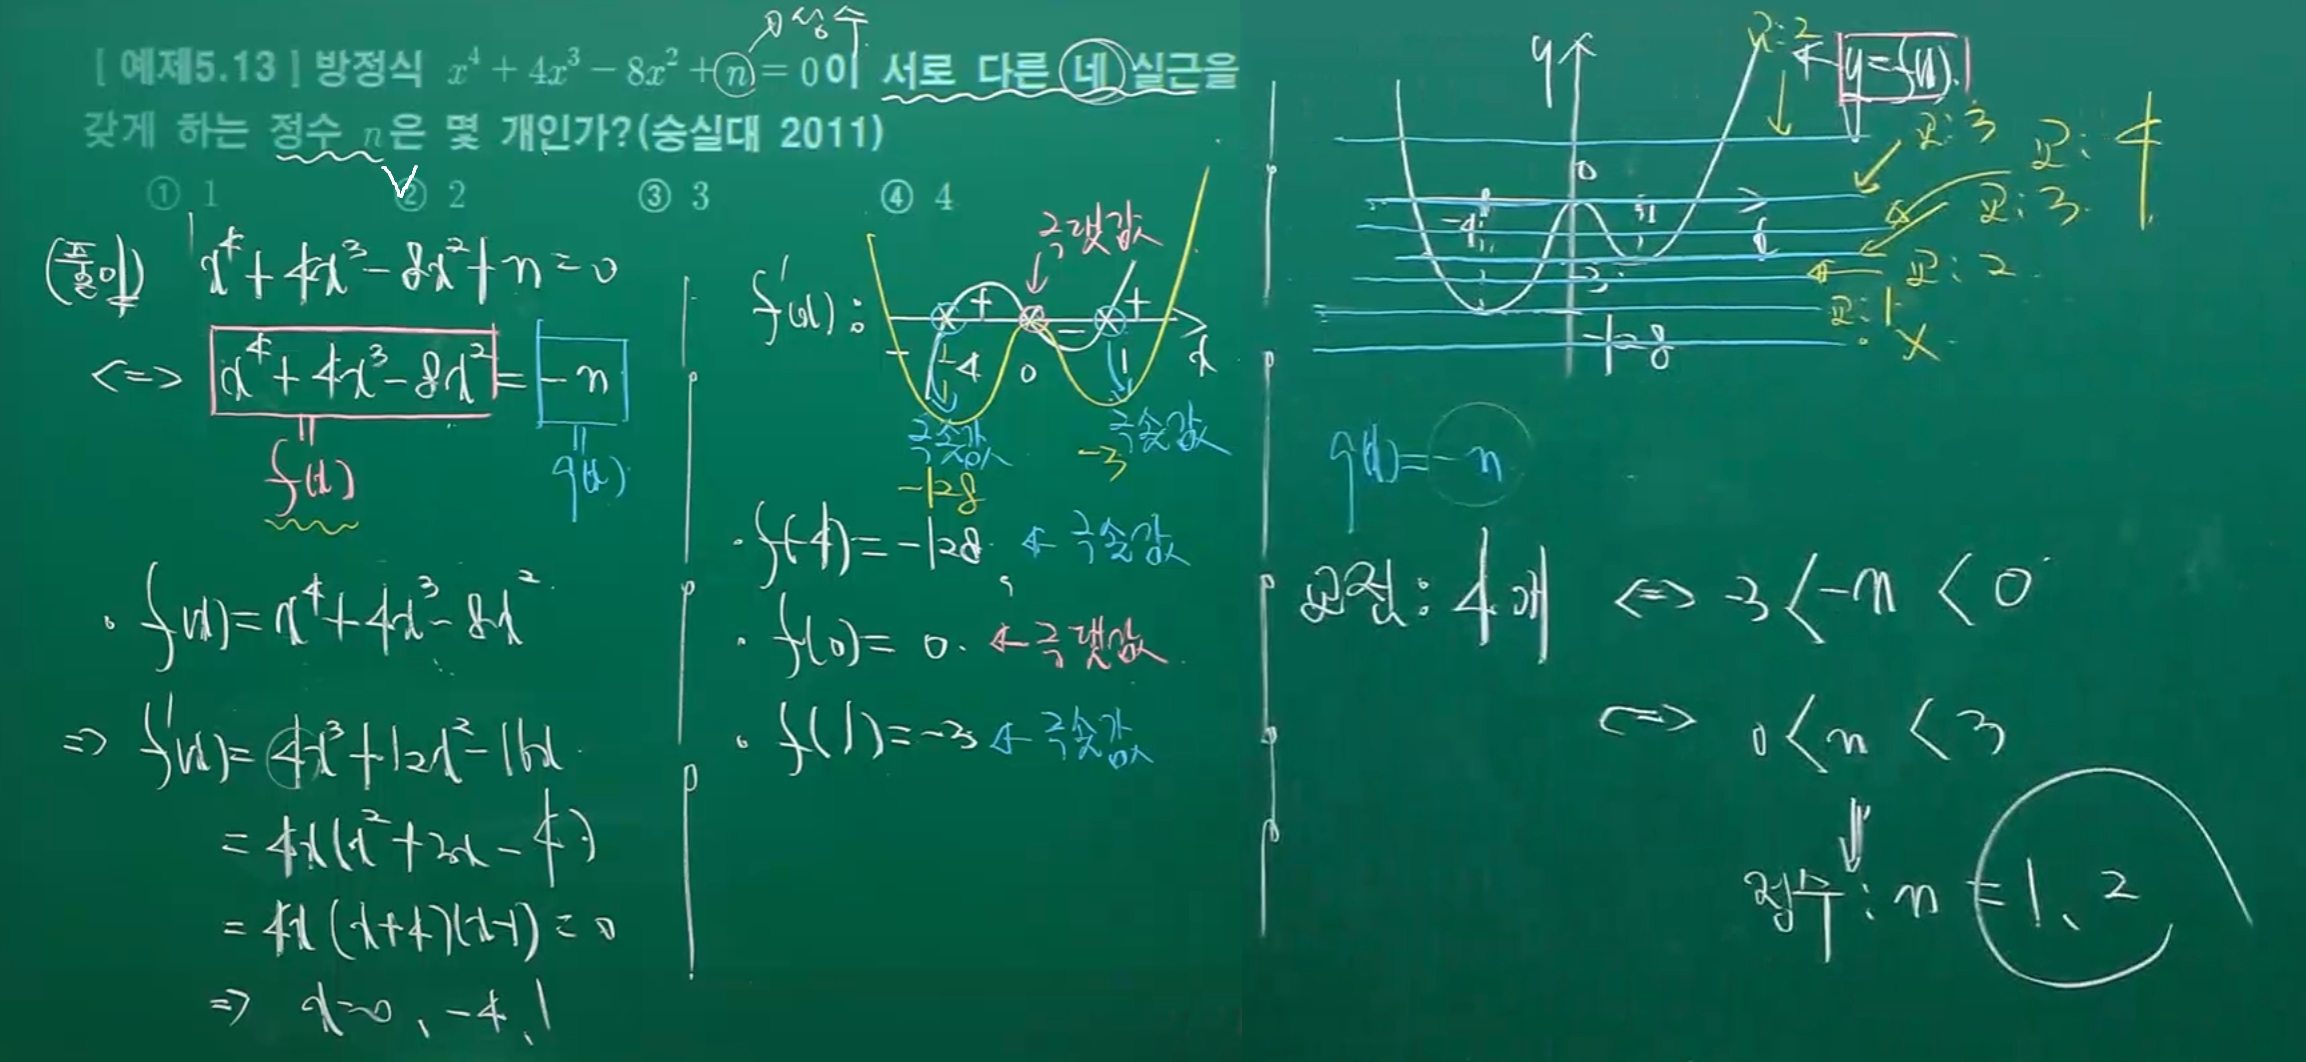 상수
[ 예제5.13 ] 방정식 x⁴ + 4x³ − 8x² + n = 0이 서로 다른 네 실근을
갖게 하는 정수 n은 몇 개인가?(숭실대 2011)
① 1 ② 2 ③ 3 ④ 4
(풀이) x⁴ + 4x³ − 8x² + n = 0
<=> x⁴ + 4x³ − 8x² = −n
f(x) g(x)
· f(x) = x⁴ + 4x³ − 8x²
=> f'(x) = 4x³ + 12x² − 16x
= 4x(x² + 3x − 4)
= 4x(x+4)(x−1) = 0
=> x = 0, −4, 1
극댓값
f'(x) : + − +
− −4 0 1 x
극솟값 극솟값
−128 −3
· f(−4) = −128 ← 극솟값
· f(0) = 0. ← 극댓값
· f(1) = −3 ← 극솟값
y 교:2 y=f(x)
교:3
교:4
0
교:3
−4 1 x
교:2
−3
교:1
−128 X
g(x) = −n
교점: 4개 <=> −3 < −n < 0
<=> 0 < n < 3
정수: n = 1, 2